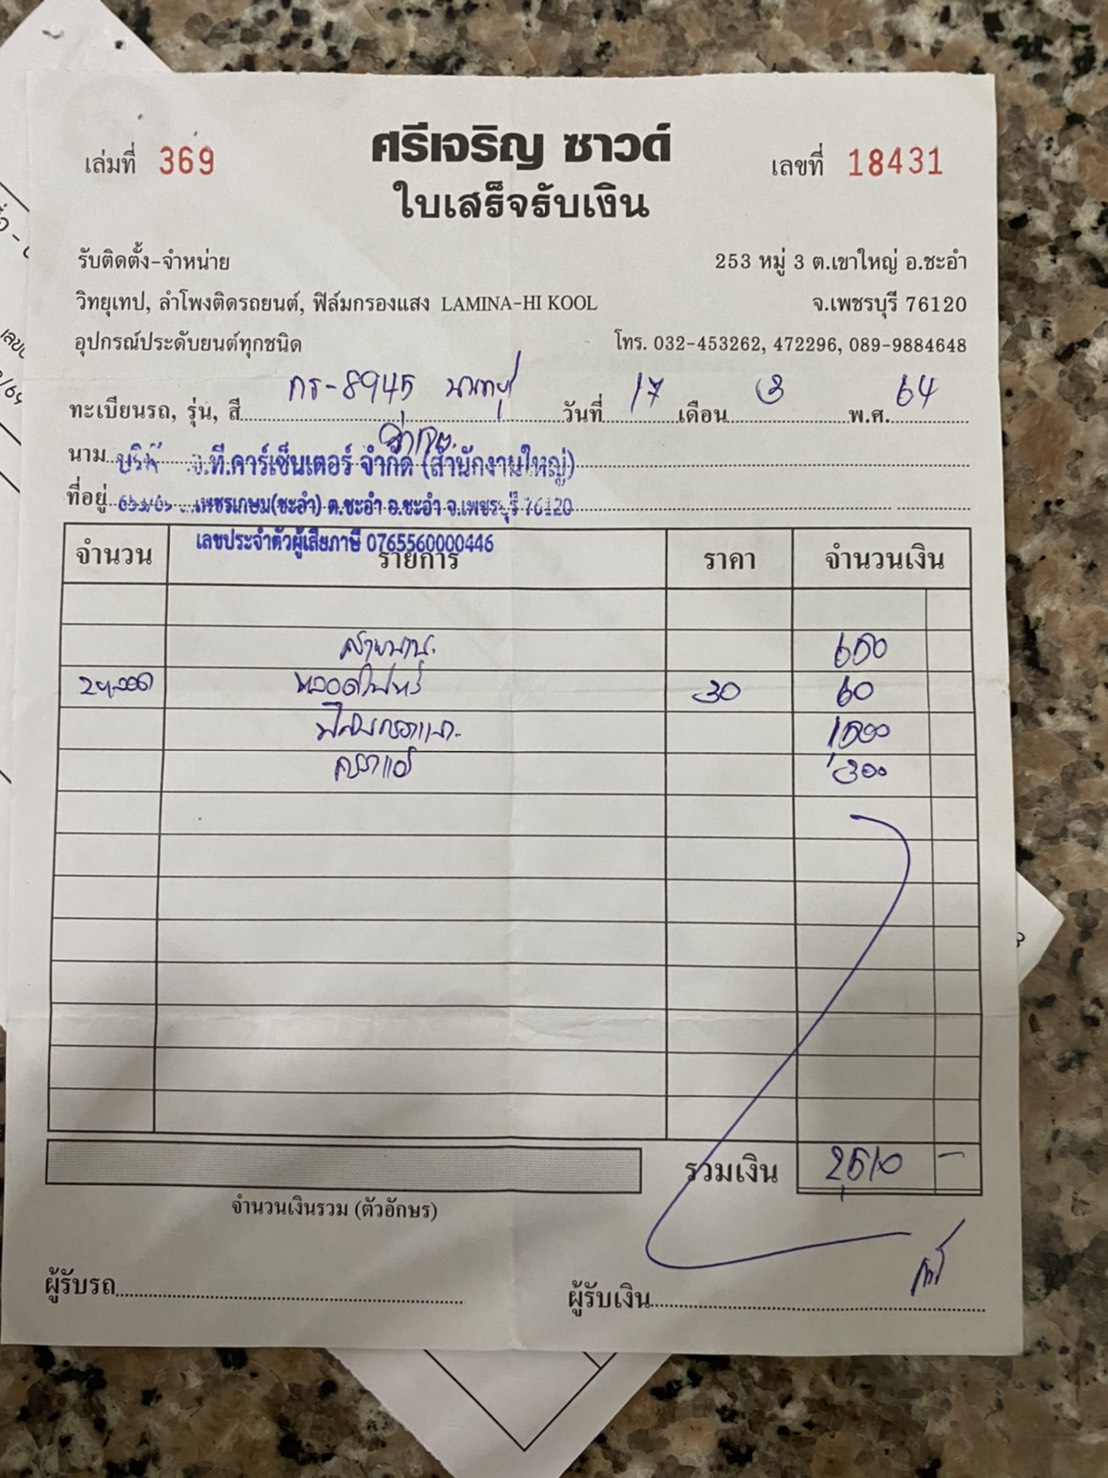 ศรีเจริญ ซาวด์
เล่มที่ 369
เลขที่ 18431
ใบเสร็จรับเงิน
รับติดตั้ง-จำหน่าย
253 หมู่ 3 ต.เขาใหญ่ อ.ชะอำ
วิทยุเทป, ลำโพงติดรถยนต์, ฟิล์มกรองแสง LAMINA-HI KOOL
จ.เพชรบุรี 76120
อุปกรณ์ประดับยนต์ทุกชนิด
โทร. 032-453262, 472296, 089-9884648
ทะเบียนรถ, รุ่น, สี กร-8945 วันที่ 17 เดือน 3 พ.ศ. 64
นาม บริษัท .ที.คาร์เซ็นเตอร์ จำกัด (สำนักงานใหญ่)
ที่อยู่ เพชรเกษม(ชะอำ) ต.ชะอำ อ.ชะอำ จ.เพชรบุรี 76120
เลขประจำตัวผู้เสียภาษี 0765560000446
จำนวน รายการ ราคา จำนวนเงิน
650
30 60
ฟิล์มกรองแสง 1,500
300
รวมเงิน 2,510 -
จำนวนเงินรวม (ตัวอักษร)
ผู้รับรถ
ผู้รับเงิน